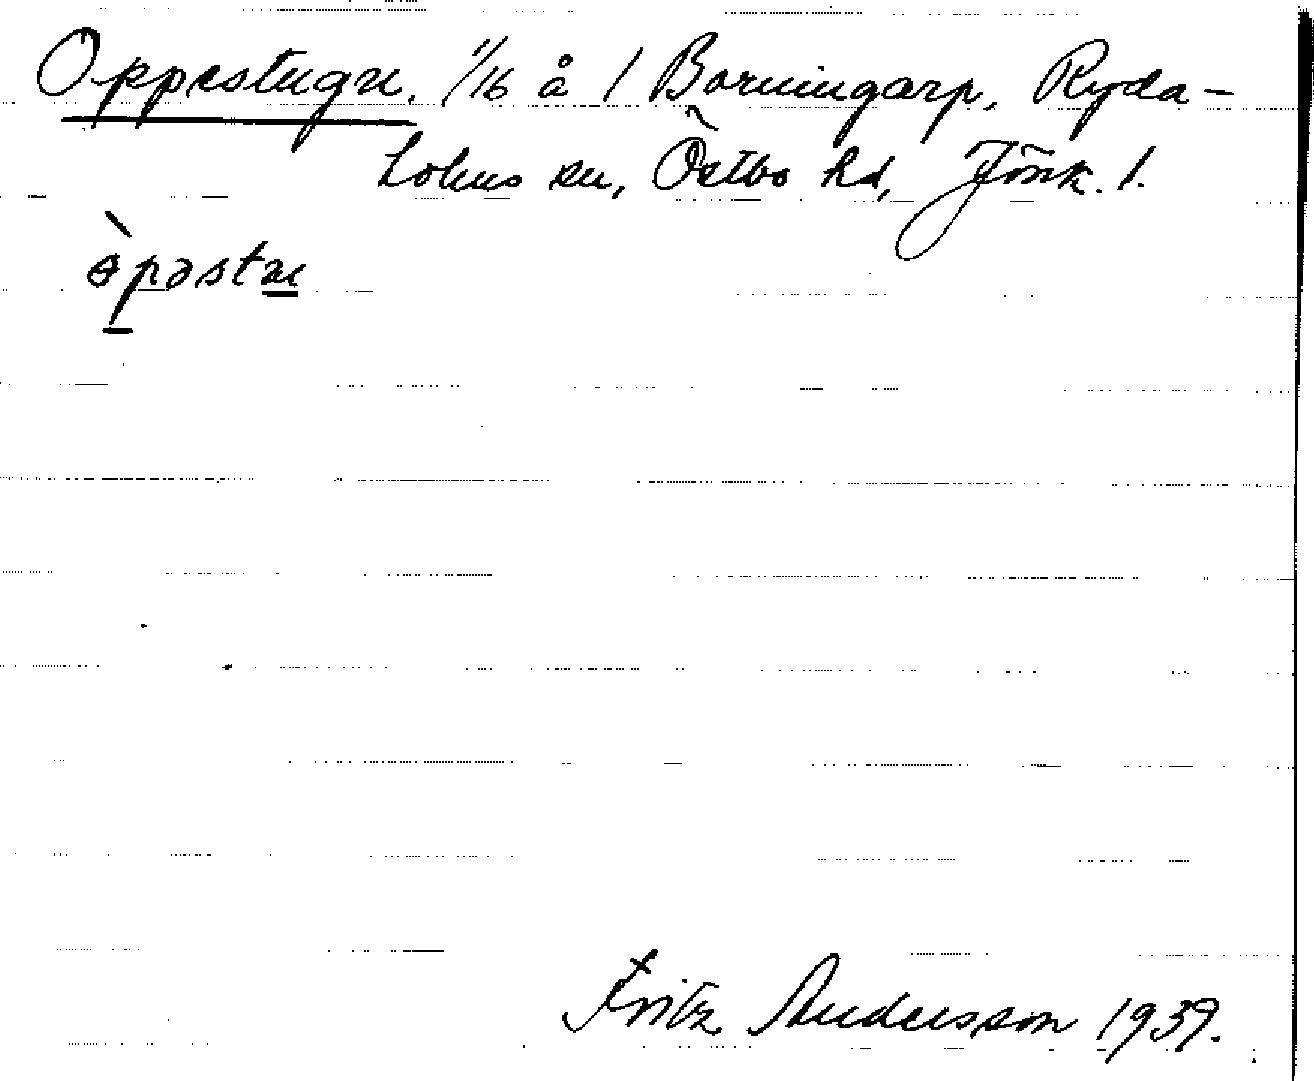 Oppestugn. 1/16 å 1 Borningarp, Ryda-
holms sn, Östbo hd, Jönk. l.
Fritz Andersson 1939.